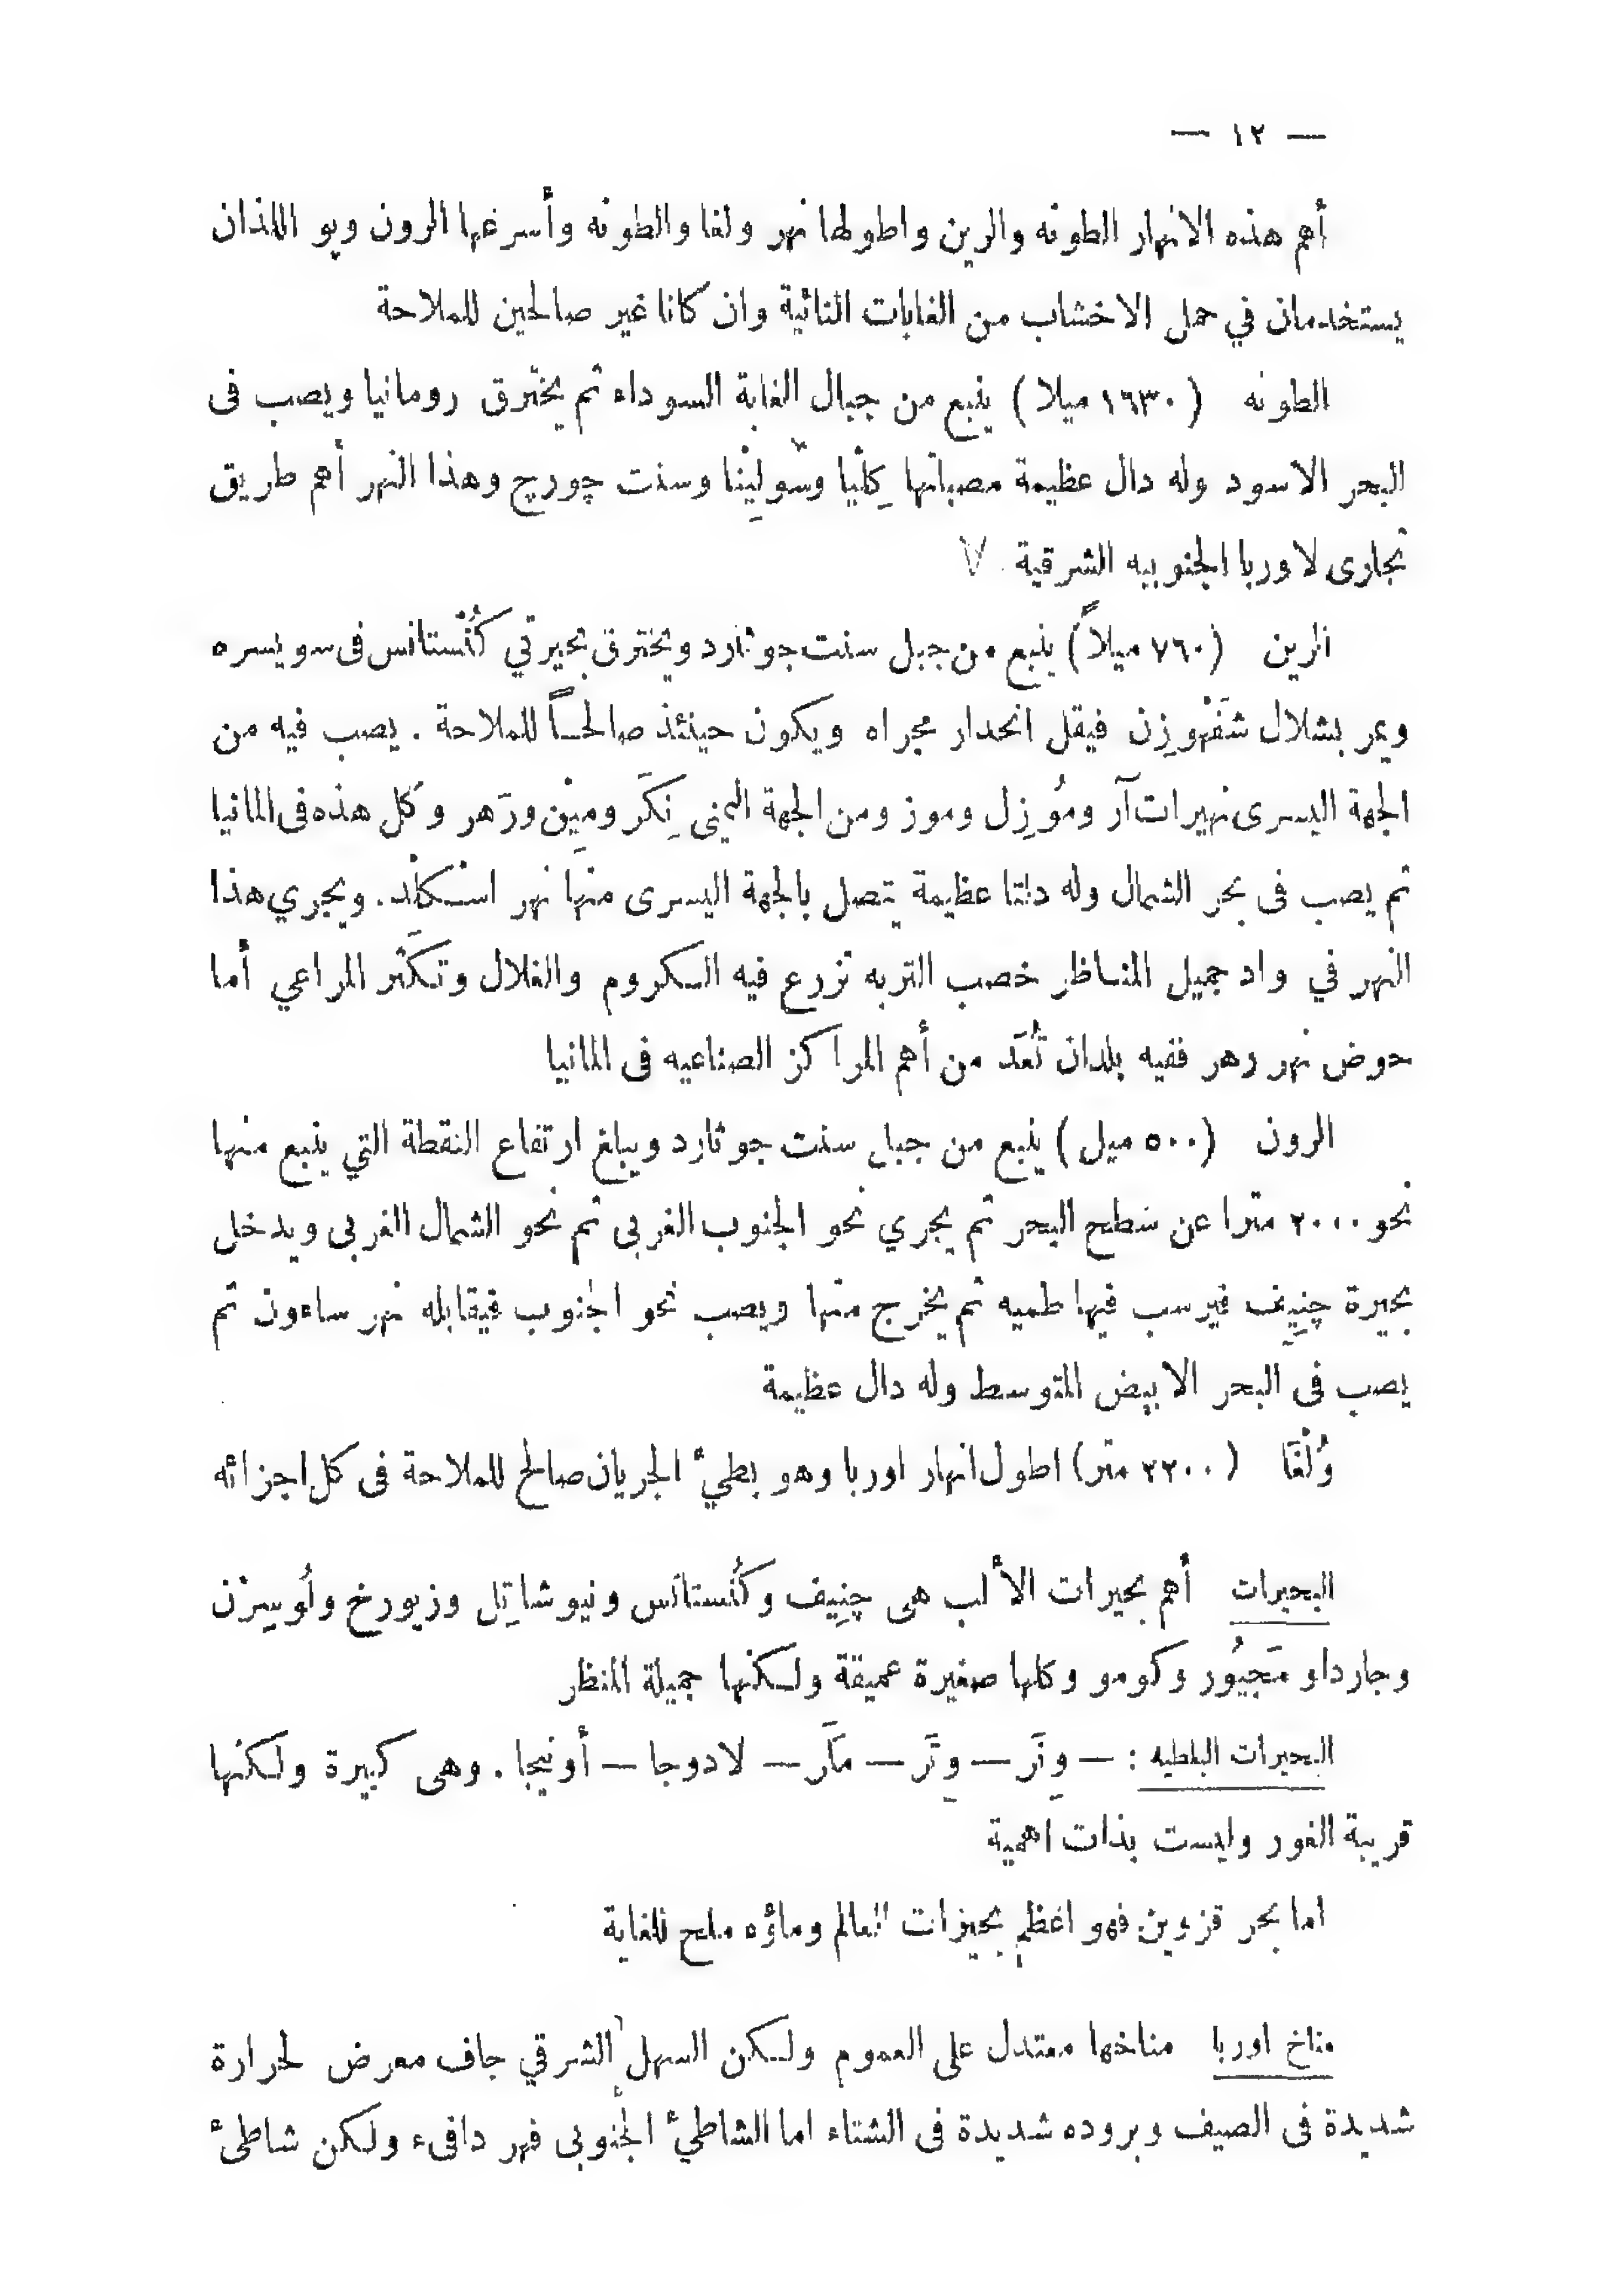 — ١٢ —
أهم هذه الانهار الطونه والرين واطولها نهر ولغا والطونه وأسرعها الرون وپو اللذان
يستخدمان في حمل الاخشاب من الغابات النائية وان كانا غير صالحين للملاحة
الطونه (١٦٣٠ ميلا) ينبع من جبال الغابة السوداء ثم يخترق رومانيا ويصب فى
البحر الاسود وله دال عظيمة مصباتها كِلْيا وسُولِيْنا وسنت چورچ وهذا النهر أهم طريق
تجارى لاوربا الجنوبيه الشرقية.
الرين (٧٦٠ ميلاً) ينبع من جبل سنت جوثارد ويخترق بحيرتي كُنْستانس فى سويسره
ويمر بشلال شَفْهوزِن فيقل انحدار مجراه ويكون حينئذ صالحاً للملاحة . يصب فيه من
الجهة اليسرى نهيرات آر ومُوزِل وموز ومن الجهة اليمنى نِكَر ومِيْن ورَهر وكل هذه فى المانيا
ثم يصب فى بحر الشمال وله دلتا عظيمة يتصل بالجهة اليسرى منها نهر اسْكلْد. ويجري هذا
النهر في واد جميل المناظر خصب التربه تزرع فيه الكروم والغلال وتكثَر المراعي أما
حوض نهر رهر ففيه بلدان تُعَد من أهم المراكز الصناعيه فى المانيا
الرون (٥٠٠ ميل) ينبع من جبل سنت جوثارد ويبلغ ارتفاع النقطة التي ينبع منها
نحو ٢٠٠٠ مترا عن سطح البحر ثم يجري نحو الجنوب الغربى ثم نحو الشمال الغربى ويدخل
بحيرة چنِيِف فيرسب فيها طميه ثم يخرج منها ويصب نحو الجنوب فيقابله نهر ساءون ثم
يصب فى البحر الابيض المتوسط وله دال عظيمة
وُلْغَا (٢٢٠٠ متر) اطول انهار اوربا وهو بطيء الجريان صالح للملاحة فى كل اجزائه
البحيرات أهم بحيرات الألب هى چنِيف وكُنستانس ونيوشاتِل وزيورخ ولُوسِرْن
وجاردا و مَجيُور وكومو وكلها صغيرة عميقة ولكنها جميلة المنظر
البحيرات البلطيه : — ونَر — وِتَر — ملَر — لادوجا — أونيجا . وهى كبيرة ولكنها
قريبة الغور وليست بذات اهمية
اما بحر قزوين فهو اعظم بحيرات العالم وماؤه ملح للغاية
مناخ اوربا مناخها معتدل على العموم ولكن السهل الشرقي جاف معرض لحرارة
شديدة فى الصيف وبروده شديدة فى الشتاء اما الشاطيء الجنوبى فهر دافىء ولكن شاطىء